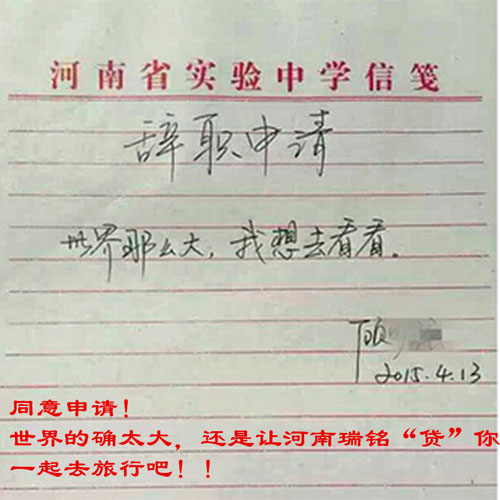 河南省实验中学信笺
辞职申请
世界那么大，我想去看看。
顾
2015.4.13
同意申请！
世界的确太大，还是让河南瑞铭“贷”你
一起去旅行吧！！